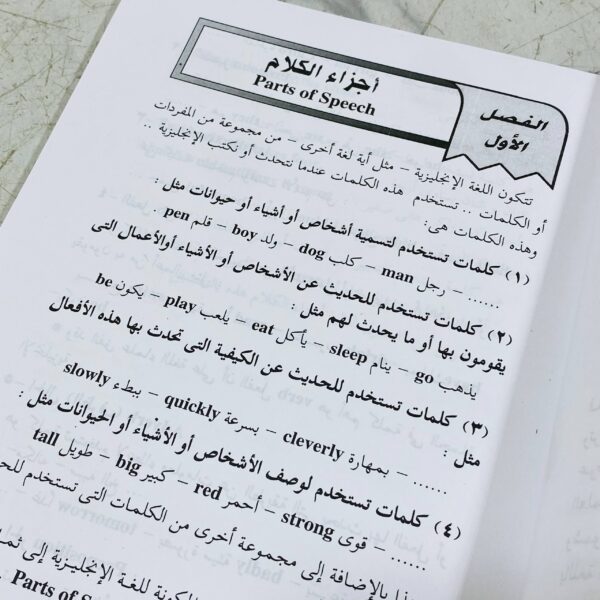 الفصل الأول
أجزاء الكلام
Parts of Speech
تتكون اللغة الإنجليزية – مثل أية لغة أخرى – من مجموعة من المفردات
أو الكلمات .. تستخدم هذه الكلمات عندما نتحدث أو نكتب الإنجليزية ..
وهذه الكلمات هى:
(١) كلمات تستخدم لتسمية أشخاص أو أشياء أو حيوانات مثل :
رجل man – كلب dog – ولد boy – قلم pen ......
(٢) كلمات تستخدم للحديث عن الأشخاص أو الأشياء أوالأعمال التى
يقومون بها أو ما يحدث لهم مثل :
يذهب go – ينام sleep – يأكل eat – يلعب play – يكون be
(٣) كلمات تستخدم للحديث عن الكيفية التى تحدث بها هذه الأفعال
مثل :
بمهارة cleverly – بسرعة quickly – ببطء slowly – ......
(٤) كلمات تستخدم لوصف الأشخاص أو الأشياء أو الحيوانات مثل :
قوى strong – أحمر red – كبير big – طويل tall – ......
بالإضافة إلى مجموعة أخرى من الكلمات التى تستخدم
للغة الإنجليزية إلى
Parts of Speech